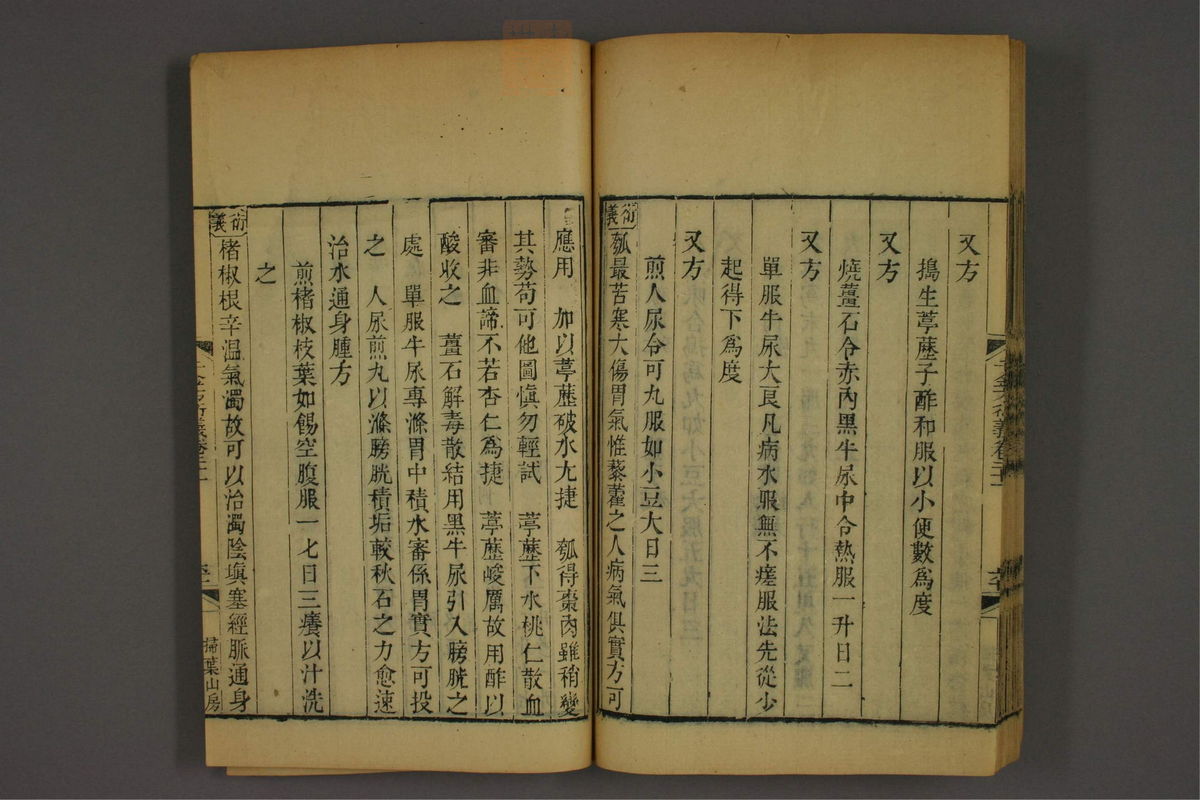 又方
搗生葶藶子酢和服以小便數爲度
又方
燒薑石令赤內黑牛尿中令熱服一升日二
又方
單服牛尿大良凡病水服無不瘥服法先從少
起得下爲度
又方
煎人尿令可丸服如小豆大日三
衍義
瓠最苦寒大傷胃氣惟藜藿之人病氣俱實方可
應用 加以葶藶破水尤捷 瓠得棗肉雖稍變
其勢苟可他圖愼勿輕試 葶藶下水桃仁散血
審非血諦不若杏仁爲捷 葶藶峻厲故用酢以
酸收之 薑石解毒散結用黑牛尿引入膀胱之
處 單服牛尿專滌胃中積水審係胃實方可投
之 人尿煎丸以滌膀胱積垢較秋石之力愈速
治水通身腫方
煎楮椒枝葉如餳空腹服一七日三癢以汁洗
之
衍義
楮椒根辛温氣濁故可以治濁陰塡塞經脈通身
掃葉山房